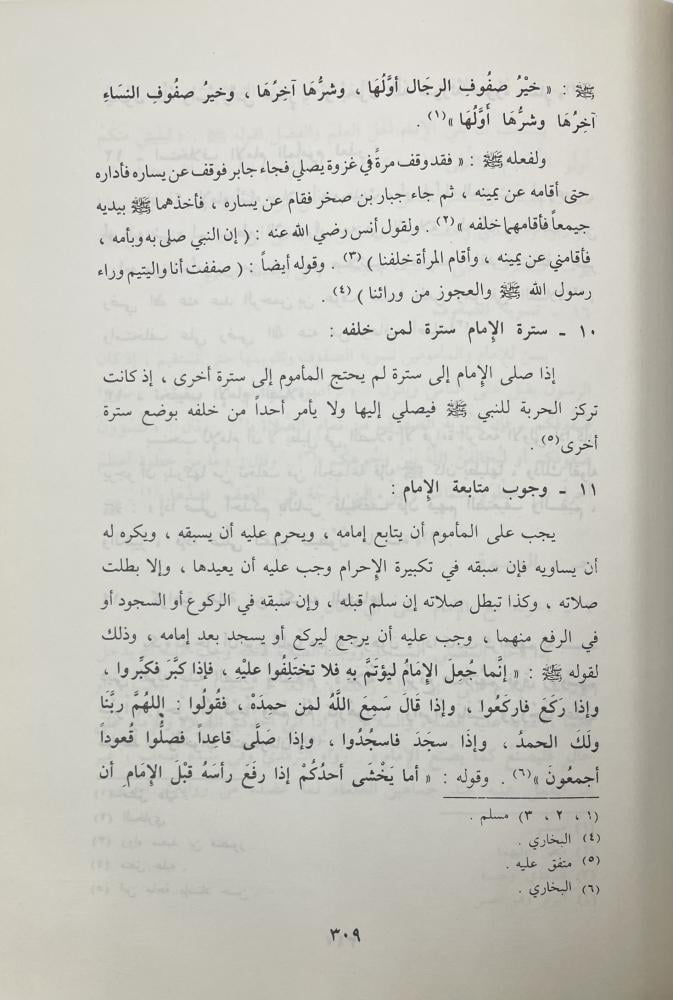 ﷺ : « خيْرُ صفُوفِ الرجَال أوَّلُهَا ، وشرُّهَا آخِرُهَا ، وخيرُ صفُوفِ النسَاءِ
آخِرُهَا وشرُّهَا أَوَّلُهَا »(١) .
ولفعله ﷺ : « فقد وقف مرةً في غزوة يصلي فجاء جابر فوقف عن يساره فأداره
حتى أقامه عن يمينه ، ثم جاء جبار بن صخر فقام عن يساره ، فأخذهما ﷺ بيديه
جيمعاً فأقامهما خلفه »(٢) . ولقول أنس رضي الله عنه : ( إن النبي صلى به وبأمه ،
فأقامني عن يمينه ، وأقام المرأة خلفنا )(٣) . وقوله أيضاً : ( صففت أنا واليتيم وراء
رسول الله ﷺ والعجوز من ورائنا )(٤) .
١٠ ـ سترة الإِمام سترة لمن خلفه :
إذا صلى الإِمام إلى سترة لم يحتج المأموم إلى سترة أخرى ، إذ كانت
تركز الحربة للنبي ﷺ فيصلي إليها ولا يأمر أحداً من خلفه بوضع سترة
أخرى(٥) .
١١ ـ وجوب متابعة الإِمام :
يجب على المأموم أن يتابع إمامه ، ويحرم عليه أن يسبقه ، ويكره له
أن يساويه فإن سبقه في تكبيرة الإِحرام وجب عليه أن يعيدها ، وإلا بطلت
صلاته ، وكذا تبطل صلاته إن سلم قبله ، وإن سبقه في الركوع أو السجود أو
في الرفع منهما ، وجب عليه أن يرجع ليركع أو يسجد بعد إمامه ، وذلك
لقوله ﷺ : « إنَّما جُعلَ الإِمَامُ ليؤتَمَّ بهِ فلا تختَلِفُوا عليْهِ ، فإذا كبَّرَ فكبِّروا ،
وإذا رَكَعَ فاركَعُوا ، وإذا قَالَ سَمِعَ اللَّهُ لمن حمِدَهْ ، فقُولُوا : اللهُمَّ ربَّنَا
ولَكَ الحمدُ ، وإذَا سجَدَ فاسجُدُوا ، وإذا صَلَّى قاعِداً فصلُّوا قُعوداً
أجمعُونَ »(٦) . وقوله : « أما يَخْشَى أحدُكُمْ إذا رفَعَ رأسَهُ قبْلَ الإِمَامِ أن
(١ ، ٢ ، ٣) مسلم .
(٤) البخاري .
(٥) متفق عليه .
(٦) البخاري .
٣٠٩